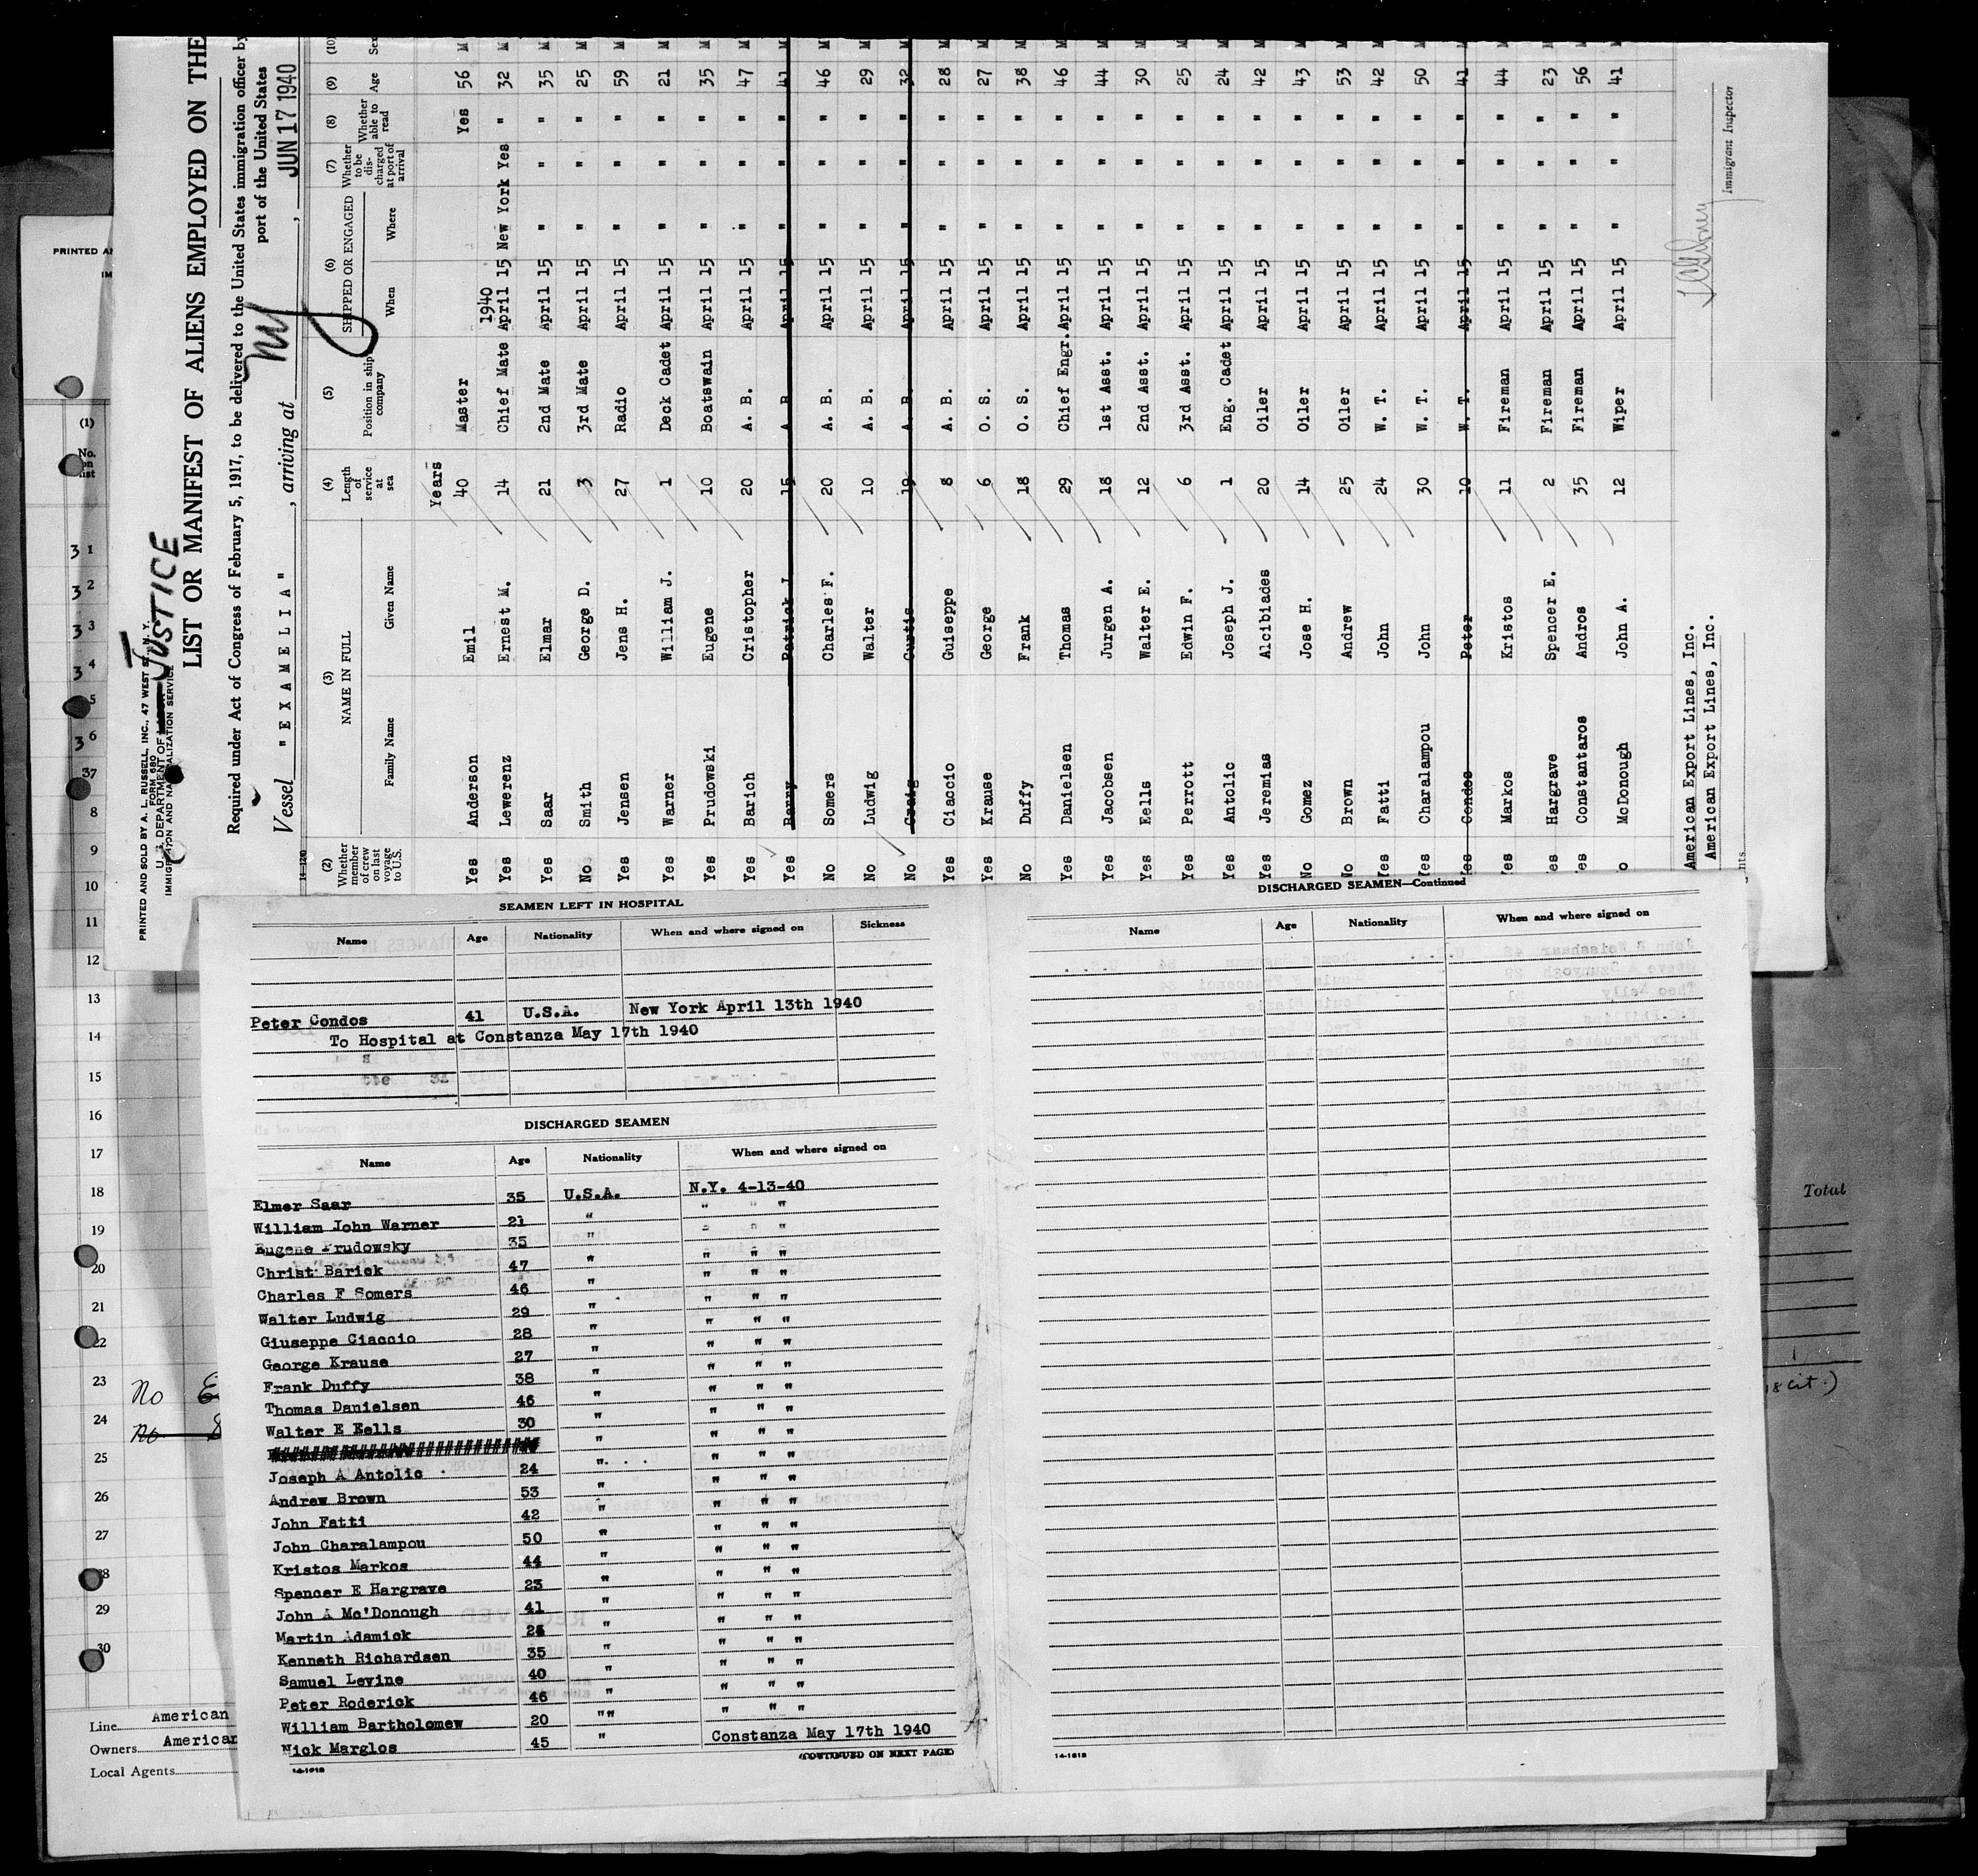 PRINTED AND SOLD BY A. L. RUSSELL, INC., 47 WEST ST., N. Y.
FORM 680
U. S. DEPARTMENT OF LABOR JUSTICE
IMMIGRATION AND NATURALIZATION SERVICE
LIST OR MANIFEST OF ALIENS EMPLOYED ON THE
Required under Act of Congress of February 5, 1917, to be delivered to the United States immigration officer by
port of the United States
Vessel "EXAMELIA", arriving at NY, JUN 17 1940
(2) (3) (4) (5) (6) (7) (8) (9) (10)
Whether member of crew on last voyage to U.S. NAME IN FULL Family Name Given Name Length of service at sea Position in ship's company SHIPPED OR ENGAGED When Where Whether to be discharged at port of arrival Whether able to read Age Sex
Years
Yes Anderson Emil 40 Master Yes 56 M
1940
Yes Lewerenz Ernest M. 14 Chief Mate April 15 New York Yes " 32 M
Yes Saar Elmar 21 2nd Mate April 15 " " " 35 M
No Smith George D. 3 3rd Mate April 15 " " " 25 M
Yes Jensen Jens H. 27 Radio April 15 " " " 59 M
Yes Warner William J. 1 Deck Cadet April 15 " " " 21 M
Yes Prudowski Eugene 10 Boatswain April 15 " " " 35 M
Yes Barich Cristopher 20 A. B. April 15 " " " 47 M
Yes Barry Patrick J. 15 A. B. April 15 " " " 41 M
No Somers Charles F. 20 A. B. April 15 " " " 46 M
No Ludwig Walter 10 A. B. April 15 " " " 29 M
No Craig Curtis 19 A. B. April 15 " " " 32 M
Yes Ciaccio Guiseppe 8 A. B. April 15 " " " 28 M
Yes Krause George 6 O. S. April 15 " " " 27 M
No Duffy Frank 18 O. S. April 15 " " " 38 M
Yes Danielsen Thomas 29 Chief Engr. April 15 " " " 46 M
Yes Jacobsen Jurgen A. 18 1st Asst. April 15 " " " 44 M
Yes Eells Walter E. 12 2nd Asst. April 15 " " " 30 M
Yes Perrott Edwin F. 6 3rd Asst. April 15 " " " 25 M
Yes Antolic Joseph J. 1 Eng. Cadet April 15 " " " 24 M
Yes Jeremias Alcibiades 20 Oiler April 15 " " " 42 M
No Gomez Jose H. 14 Oiler April 15 " " " 43 M
No Brown Andrew 25 Oiler April 15 " " " 53 M
Yes Fatti John 24 W. T. April 15 " " " 42 M
Yes Charalampou John 30 W. T. April 15 " " " 50 M
Yes Condos Peter 10 W. T. April 15 " " " 41 M
Yes Markos Kristos 11 Fireman April 15 " " " 44 M
Yes Hargrave Spencer E. 2 Fireman April 15 " " " 23 M
Yes Constantaros Andros 35 Fireman April 15 " " " 56 M
No McDonough John A. 12 Wiper April 15 " " " 41 M
American Export Lines, Inc.
American Export Lines, Inc.
Immigrant Inspector
PRINTED AN
IM
(1)
No. on list
31
32
33
34
35
36
37
8
9
10
11
12
13
14
15
16
17
18
19
20
21
22
23 No
24 No
25
26
27
28
29
30
Line American
Owners American
Local Agents
Total
18 cit.)
SEAMEN LEFT IN HOSPITAL
Name Age Nationality When and where signed on Sickness
Peter Condos 41 U.S.A. New York April 13th 1940
To Hospital at Constanza May 17th 1940
DISCHARGED SEAMEN
Name Age Nationality When and where signed on
Elmer Saar 35 U.S.A. N.Y. 4-13-40
William John Warner 21 " " " "
Eugene Prudowsky 35 " " " "
Christ Barick 47 " " " "
Charles F Somers 46 " " " "
Walter Ludwig 29 " " " "
Giuseppe Ciaccio 28 " " " "
George Krause 27 " " " "
Frank Duffy 38 " " " "
Thomas Danielsen 46 " " " "
Walter E Eells 30 " " " "
Joseph A Antolic 24 " " " "
Andrew Brown 53 " " " "
John Fatti 42 " " " "
John Charalampou 50 " " " "
Kristos Markos 44 " " " "
Spencer E Hargrave 23 " " " "
John A Mc'Donough 41 " " " "
Martin Adamick " " " "
Kenneth Richardsen 35 " " " "
Samuel Levine 40 " " " "
Peter Roderick 46 " " " "
William Bartholomew 20 "" " " "
Nick Marglos 45 " Constanza May 17th 1940
(CONTINUED ON NEXT PAGE)
14-1618
DISCHARGED SEAMEN—Continued
Name Age Nationality When and where signed on
14-1618